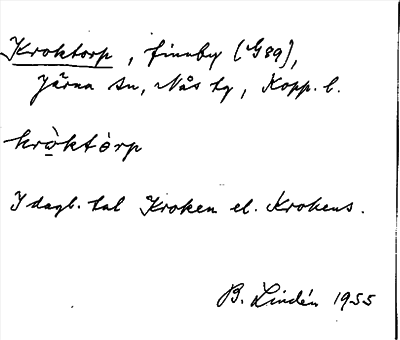 Kroktorp, finnby (G89),
Järna sn, Nås tg, Kopp. l.
krò̱którp
I dagl. tal Kroken el. Krokens.
B. Lindén 1955